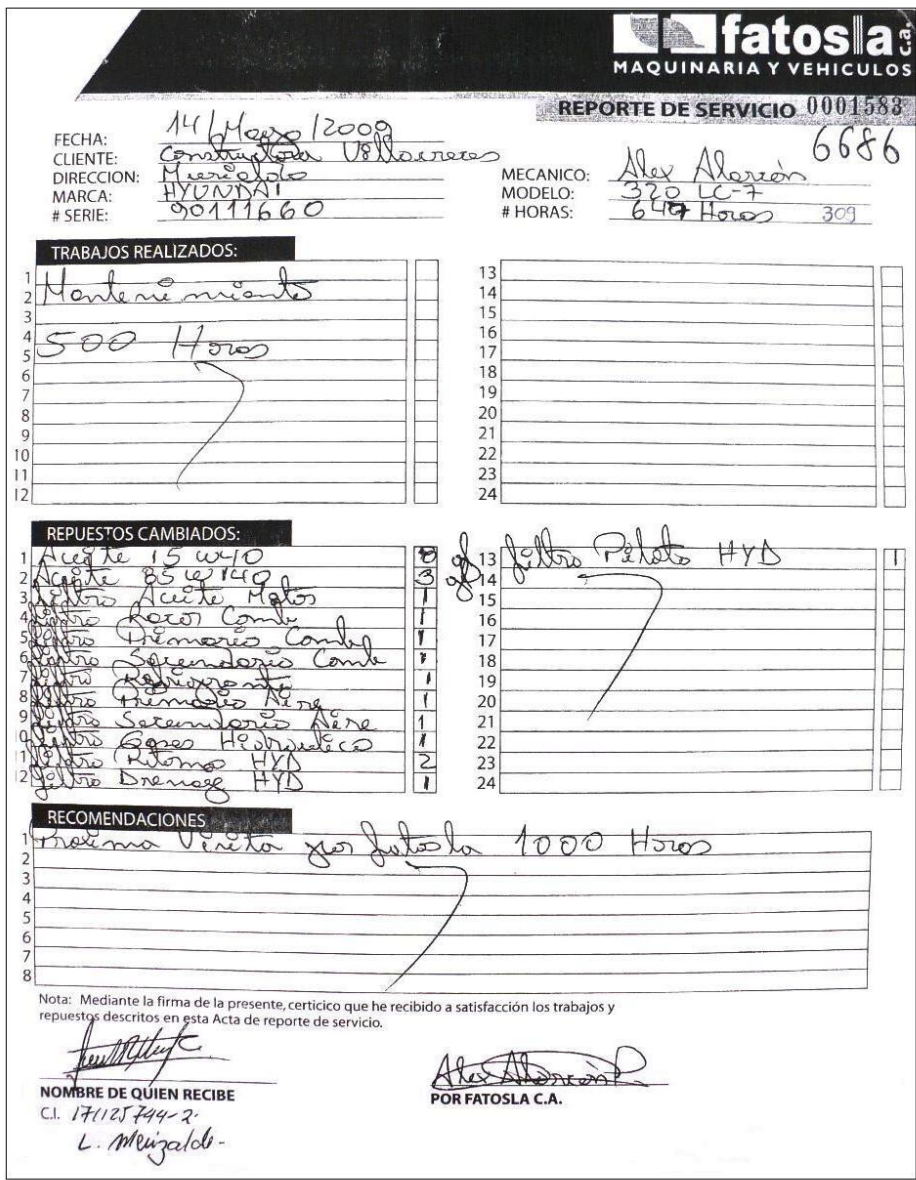 fatosla c.a.
MAQUINARIA Y VEHICULOS
REPORTE DE SERVICIO 0001583
6686
FECHA: 14/Mayo/2009
CLIENTE: Constructora Villacreces
DIRECCION:
MARCA: HYUNDAI
# SERIE: 90111660
MECANICO: Alex Alarcón
MODELO: 320 LC-7
# HORAS: 647 Horas 309
TRABAJOS REALIZADOS:
1
2 Mantenimiento
3
4
5 500 Horas
6
7
8
9
10
11
12
13
14
15
16
17
18
19
20
21
22
23
24
REPUESTOS CAMBIADOS:
1 Aceite 15W40 8 gl
2 Aceite 85W140 3 gl
3 filtro Aceite Motor 1
4 filtro Racor Comb 1
5 filtro Primario Comb 1
6 filtro Secundario Comb 1
7 filtro Refrigerante 1
8 filtro Primario Aire 1
9 filtro Secundario Aire 1
10 filtro Gases Hidraulico 1
11 filtro Retorno HYD 2
12 filtro Drenage HYD 1
13 filtro Piloto HYD 1
14
15
16
17
18
19
20
21
22
23
24
RECOMENDACIONES
1 Proxima Visita por fatosla 1000 Horas
2
3
4
5
6
7
8
Nota: Mediante la firma de la presente, certicico que he recibido a satisfacción los trabajos y
repuestos descritos en esta Acta de reporte de servicio.
NOMBRE DE QUIEN RECIBE
C.I. 171125744-2
L. Merizalde
Alex Alarcón P.
POR FATOSLA C.A.